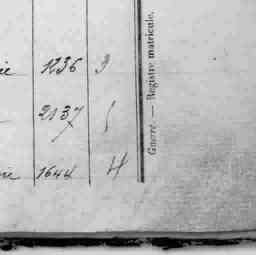 1236 3
2137
1644 4
Guerre. — Registre matricule.